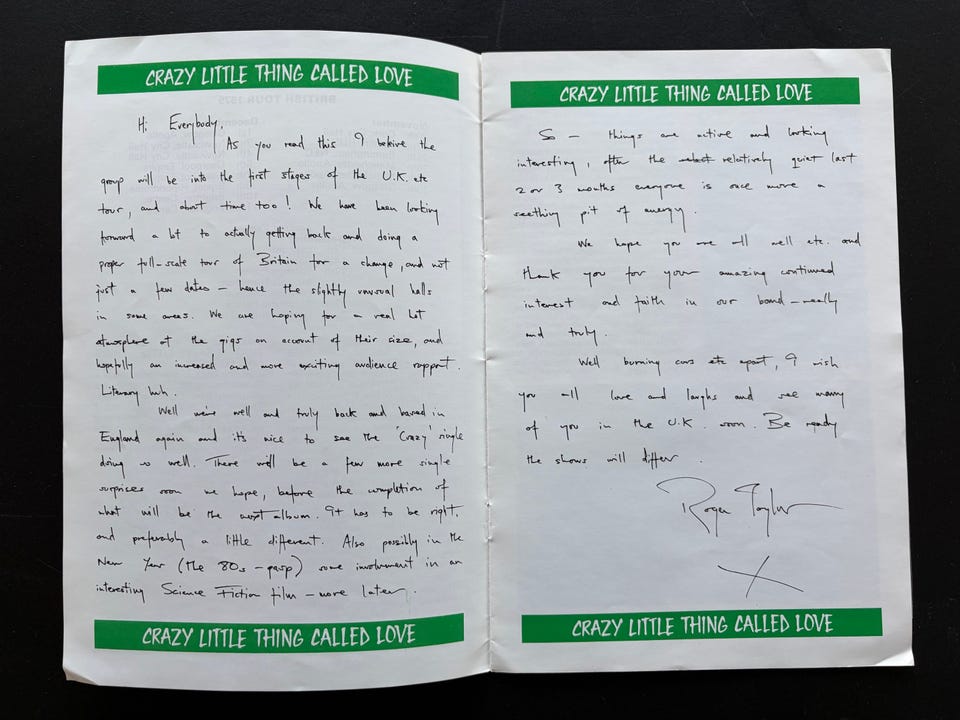 CRAZY LITTLE THING CALLED LOVE
Hi Everybody,
As you read this I believe the
group will be into the first stages of the U.K. etc
tour, and about time too! We have been looking
forward a lot to actually getting back and doing a
proper full-scale tour of Britain for a change, and not
just a few dates – hence the slightly unusual halls
in some areas. We are hoping for a real hot
atmosphere at the gigs on account of their size, and
hopefully an increased and more exciting audience rapport.
Literary huh.
Well we're well and truly back and based in
England again and it's nice to see the 'Crazy' single
doing so well. There will be a few more single
surprises soon we hope, before the completion of
what will be the next album. It has to be right,
and preferably a little different. Also possibly in the
New Year (the 80s – gasp) some involvement in an
interesting Science Fiction film – more later.
CRAZY LITTLE THING CALLED LOVE
CRAZY LITTLE THING CALLED LOVE
So – things are active and looking
interesting, after the relatively quiet last
2 or 3 months everyone is once more a
seething pit of energy.
We hope you are all well etc. and
thank you for your amazing continued
interest and faith in our band – really
and truly.
Well burning cars etc apart, I wish
you all love and laughs and see many
of you in the U.K. soon. Be ready
the shows will differ.
Roger Taylor
X
CRAZY LITTLE THING CALLED LOVE